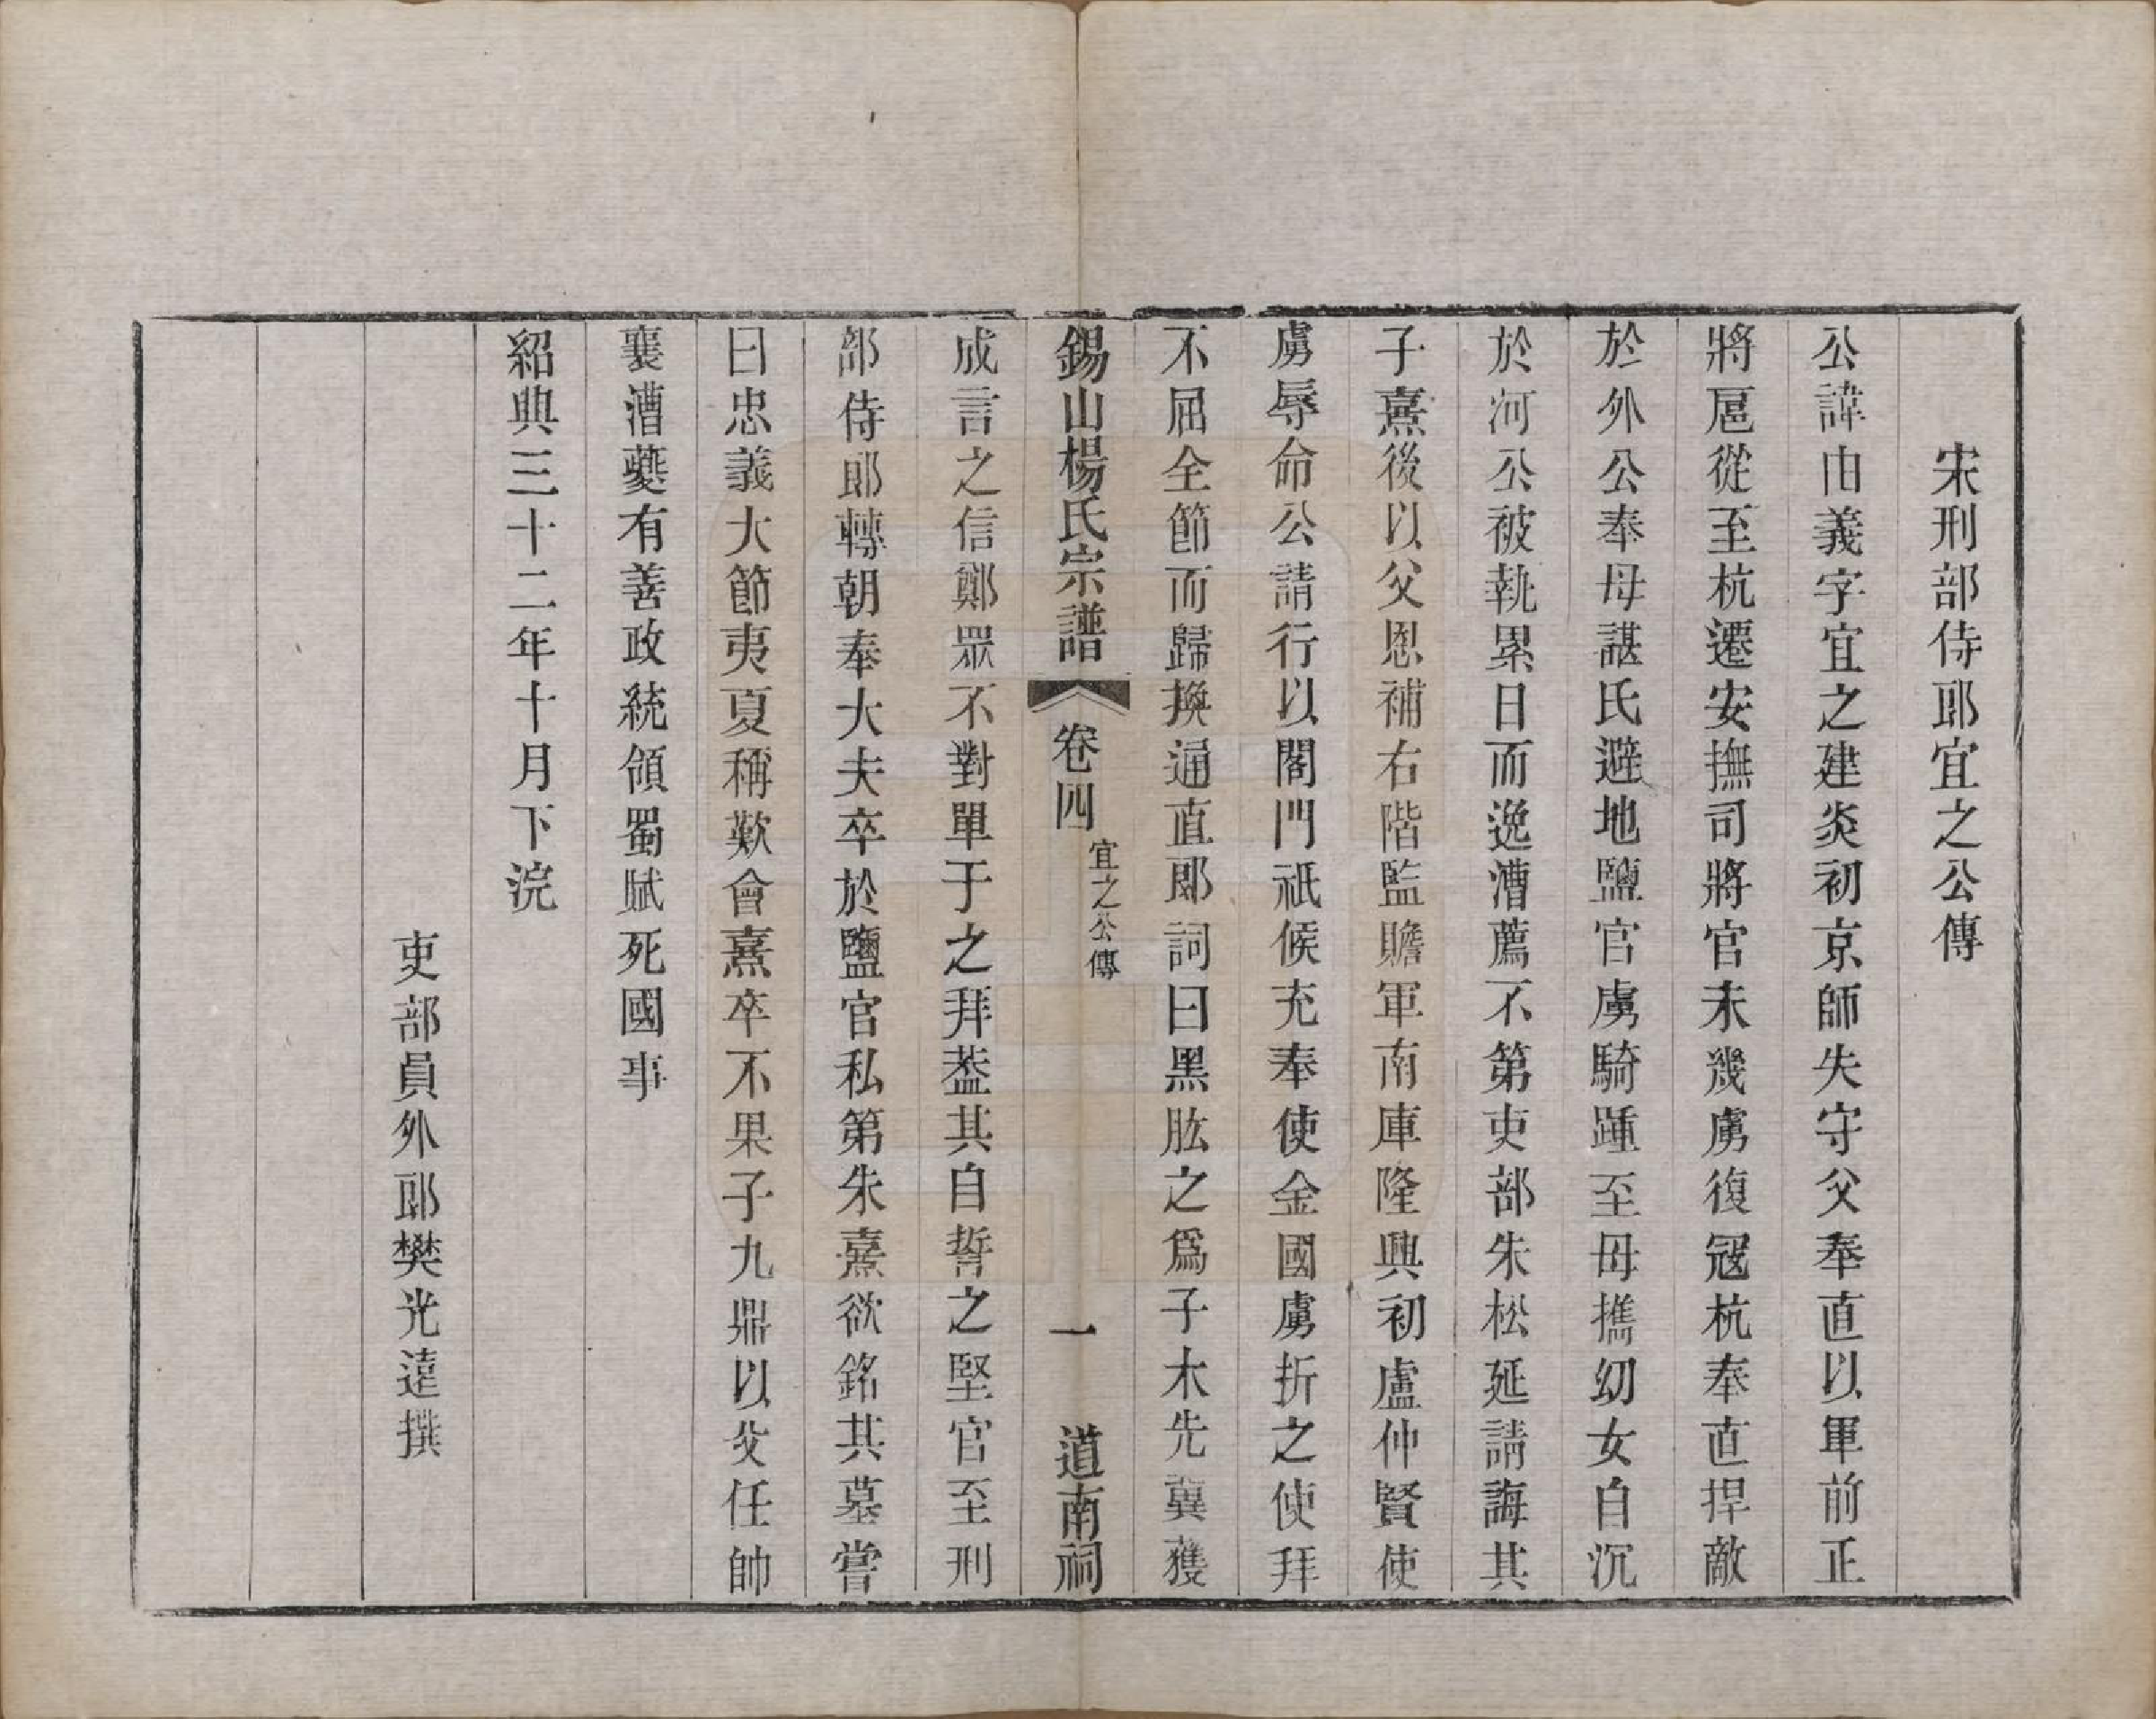 宋刑部侍郎宜之公傳
公諱由義字宜之建炎初京師失守父奉直以軍前正
將扈從至杭遷安撫司將官未幾虜復冦杭奉直捍敵
於外公奉母諶氏避地鹽官虜騎踵至母攜幼女自沉
於河公被執累日而逸漕薦不第吏部朱松延請誨其
子熹後以父恩補右階監贍軍南庫隆興初盧仲賢使
虜辱命公請行以閤門祇候充奉使金國虜折之使拜
不屈全節而歸換通直郎詞曰黑肱之爲子木先冀獲
錫山楊氏宗譜 卷四 宜之公傳 一 道南祠
成言之信鄭眾不對單于之拜葢其自誓之堅官至刑
部侍郎轉朝奉大夫卒於鹽官私第朱熹欲銘其墓嘗
曰忠義大節夷夏稱歎會熹卒不果子九鼎以父任帥
襄漕夔有善政統領蜀賦死國事
紹興三十二年十月下浣
吏部員外郎樊光遠撰